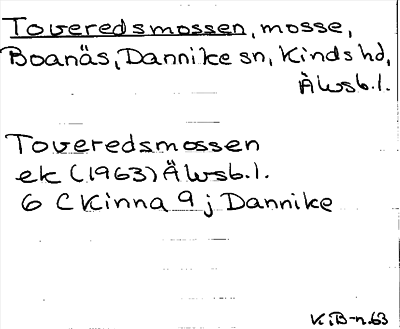 Toveredsmossen, mosse,
Boanäs, Dannike sn, Kinds hd,
Älvsb.l.
Toveredsmossen
ek (1963) Älvsb.l.
6 C Kinna 9 j Dannike
K.B-n.63